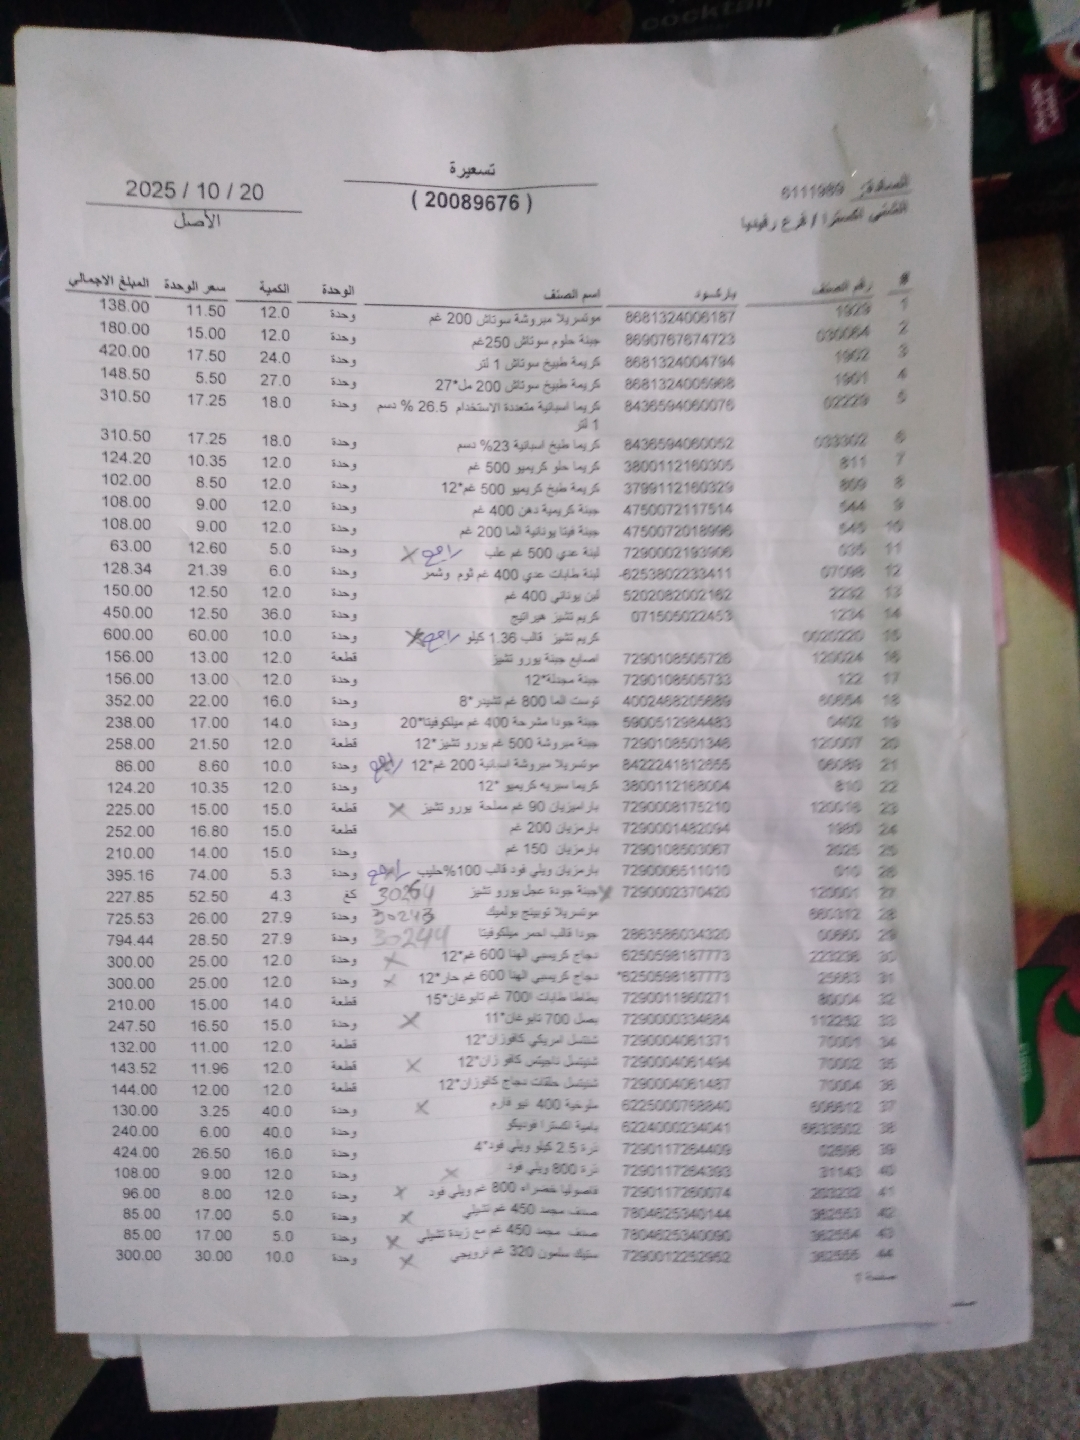 cocktail
تسعيرة
( 20089676 )
2025 / 10 / 20
الأصل
السادة: 6111989
الشني اكسترا / فرع رفيديا
# رقم الصنف باركود اسم الصنف الوحدة الكمية سعر الوحدة المبلغ الاجمالي
1 1929 8681324006187 موتسريلا مبروشة سوتاش 200 غم وحدة 12.0 11.50 138.00
2 030064 8690767674723 جبنة حلوم سوتاش 250غم وحدة 12.0 15.00 180.00
3 1902 8681324004794 كريمة طبيخ سوتاش 1 لتر وحدة 24.0 17.50 420.00
4 1901 8681324005968 كريمة طبيخ سوتاش 200 مل*27 وحدة 27.0 5.50 148.50
5 02229 8436594060076 كريما اسبانية متعددة الاستخدام 26.5 % دسم وحدة 18.0 17.25 310.50
1 لتر
6 033302 8436594060052 كريما طبخ اسبانية 23% دسم وحدة 18.0 17.25 310.50
7 811 3800112160305 كريما حلو كريميو 500 غم وحدة 12.0 10.35 124.20
8 809 3799112160329 كريمة طبخ كريميو 500 غم*12 وحدة 12.0 8.50 102.00
9 544 4750072117514 جبنة كريمية دهن 400 غم وحدة 12.0 9.00 108.00
10 545 4750072018996 جبنة فيتا يونانية الما 200 غم وحدة 12.0 9.00 108.00
11 035 7290002193906 لبنة عدي 500 غم علب راجع × وحدة 5.0 12.60 63.00
12 07098 -6253802233411 لبنة طابات عدي 400 غم ثوم وشمر وحدة 6.0 21.39 128.34
13 2232 5202082002162 لبن يوناني 400 غم وحدة 12.0 12.50 150.00
14 1234 071505022453 كريم تشيز هيرايتج وحدة 36.0 12.50 450.00
15 0020220 كريم تشيز قالب 1.36 كيلو راجع × وحدة 10.0 60.00 600.00
16 120024 7290108505726 اصابع جبنة يورو تشيز قطعة 12.0 13.00 156.00
17 122 7290108505733 جبنة مجدلة*12 وحدة 12.0 13.00 156.00
18 80664 4002468205689 توست الما 800 غم تشيدر*8 وحدة 16.0 22.00 352.00
19 0402 5900512984483 جبنة جودا مشرحة 400 غم ميلكوفيتا*20 وحدة 14.0 17.00 238.00
20 120007 7290108501346 جبنة مبروشة 500 غم يورو تشيز*12 قطعة 12.0 21.50 258.00
21 06089 8422241812655 موتسريلا مبروشة اسبانية 200 غم*12 راجع وحدة 10.0 8.60 86.00
22 810 3800112168004 كريما سبريه كريميو *12 وحدة 12.0 10.35 124.20
23 120016 7290008175210 باراميزيان 90 غم مملحة يورو تشيز × قطعة 15.0 15.00 225.00
24 1980 7290001482094 بارمزيان 200 غم قطعة 15.0 16.80 252.00
25 2025 7290108503067 بارمزيان 150 غم وحدة 15.0 14.00 210.00
26 010 7290006511010 بارمزيان ويلي فود قالب 100%حليب راجع وحدة 5.3 74.00 395.16
27 120001 7290002370420 × جبنة جودة عجل يورو تشيز 30264 كغ 4.3 52.50 227.85
28 660312 موتسريلا توبينج بولميك 30243 وحدة 27.9 26.00 725.53
29 00660 2863586034320 جودا قالب احمر ميلكوفيتا 30244 وحدة 27.9 28.50 794.44
30 223236 6250598187773 دجاج كريسبي الهنا 600 غم*12 × وحدة 12.0 25.00 300.00
31 25663 *6250598187773 دجاج كريسبي الهنا 600 غم حار*12 × وحدة 12.0 25.00 300.00
32 80004 7290011860271 بطاطا طابات 700 غم تابوغان*15 قطعة 14.0 15.00 210.00
33 112252 7290000334684 بصل 700 تابوغان*11 × وحدة 15.0 16.50 247.50
34 70001 7290004061371 شنتسل امريكي كافوزان*12 قطعة 12.0 11.00 132.00
35 70002 7290004061494 شنيتسل ناجيتس كافوزان*12 × قطعة 12.0 11.96 143.52
36 70004 7290004061487 شنيتسل حلقات دجاج كافوزان*12 قطعة 12.0 12.00 144.00
37 606612 6225000768840 ملوخية 400 نيو فارم × وحدة 40.0 3.25 130.00
38 6633502 6224000234041 بامية اكسترا فوديكو وحدة 40.0 6.00 240.00
39 02696 7290117264409 ذرة 2.5 كيلو ويلي فود*4 وحدة 16.0 26.50 424.00
40 31143 7290117264393 ذرة 800 ويلي فود × وحدة 12.0 9.00 108.00
41 203232 7290117260074 فاصوليا خضراء 800 غم ويلي فود × وحدة 12.0 8.00 96.00
42 362553 7804625340144 صدف مجمد 450 غم تشيلي × وحدة 5.0 17.00 85.00
43 362554 7804625340090 صدف مجمد 450 غم مع زبدة تشيلي × وحدة 5.0 17.00 85.00
44 362555 7290012252952 ستيك سلمون 320 غم نرويجي × وحدة 10.0 30.00 300.00
صفحة 1